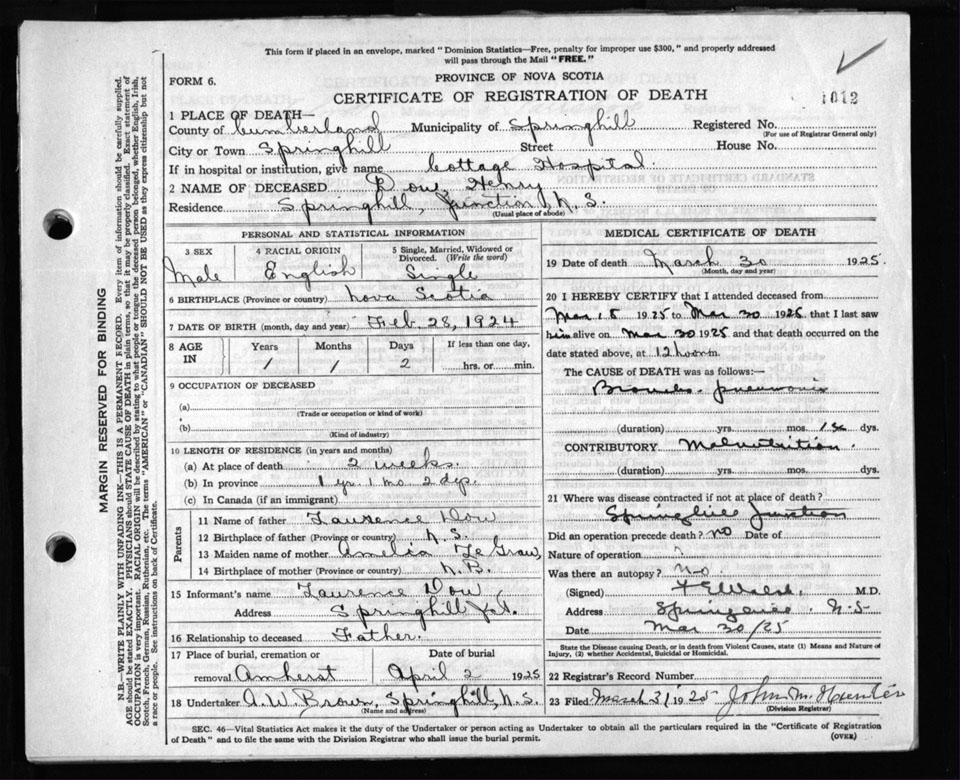 This form if placed in an envelope, marked "Dominion Statistics—Free, penalty for improper use $300," and properly addressed
will pass through the Mail "FREE."
FORM 6.
PROVINCE OF NOVA SCOTIA
CERTIFICATE OF REGISTRATION OF DEATH
1012
1 PLACE OF DEATH—
County of Cumberland Municipality of Springhill Registered No.
(For use of Registrar General only)
City or Town Springhill Street House No.
If in hospital or institution, give name Cottage Hospital.
2 NAME OF DECEASED Dow, Henry
Residence Springhill, Junction, N. S.
(Usual place of abode)
PERSONAL AND STATISTICAL INFORMATION
3 SEX 4 RACIAL ORIGIN 5 Single, Married, Widowed or
Divorced. (Write the word)
Male English Single
6 BIRTHPLACE (Province or country) Nova Scotia
7 DATE OF BIRTH (month, day and year) Feb 28, 1924
8 AGE IN Years Months Days If less than one day,
1 1 2 hrs. or min.
9 OCCUPATION OF DECEASED
(a)
(Trade or occupation or kind of work)
(b)
(Kind of industry)
10 LENGTH OF RESIDENCE (in years and months)
(a) At place of death 2 weeks.
(b) In province 1 yr. 1 mo 2 dys.
(c) In Canada (if an immigrant)
Parents
11 Name of father Laurence Dow
12 Birthplace of father (Province or country) N. S.
13 Maiden name of mother Amelia Le Graw,
14 Birthplace of mother (Province or country) N. B.
15 Informant's name Laurence Dow,
Address Springhill Jct.
16 Relationship to deceased Father.
17 Place of burial, cremation or Date of burial
removal Amherst April 2 1925
18 Undertaker A. W. Brown, Springhill, N. S.
(Name and address)
MEDICAL CERTIFICATE OF DEATH
19 Date of death March 30 1925
(Month, day and year)
20 I HEREBY CERTIFY that I attended deceased from
Mar 15 1925 to Mar 30 1925 that I last saw
him alive on Mar 30 1925 and that death occurred on the
date stated above, at 12 noon m.
The CAUSE OF DEATH was as follows:—
Broncho-pneumonia
(duration) yrs. mos. dys.
CONTRIBUTORY Malnutrition.
(duration) yrs. mos. dys.
21 Where was disease contracted if not at place of death?
Springhill Junction
Did an operation precede death? no Date of
Nature of operation
Was there an autopsy? no
(Signed) M.D.
Address Springhill. N-S
Date Mar 30/25
State the Disease causing Death, or in death from Violent Causes, state (1) Means and Nature of
Injury, (2) whether Accidental, Suicidal or Homicidal.
22 Registrar's Record Number
23 Filed March 31 1925 John M. Hunter
(Division Registrar)
SEC. 46—Vital Statistics Act makes it the duty of the Undertaker or person acting as Undertaker to obtain all the particulars required in the "Certificate of Registration
of Death" and to file the same with the Division Registrar who shall issue the burial permit.
(OVER)
MARGIN RESERVED FOR BINDING
N.B.—WRITE PLAINLY WITH UNFADING INK—THIS IS A PERMANENT RECORD. Every item of information should be carefully supplied.
AGE should be stated EXACTLY. PHYSICIANS should STATE CAUSE OF DEATH in plain terms, so that it may be properly classified. Exact statement of
OCCUPATION is very important. RACIAL ORIGIN will be described by stating to what people or tongue the deceased person belonged, whether English, Irish,
Scotch, French, German, Russian, Ruthenian, etc. The terms "AMERICAN" or "CANADIAN" SHOULD NOT BE USED as they express citizenship but not
a race or people. See instructions on back of Certificate.